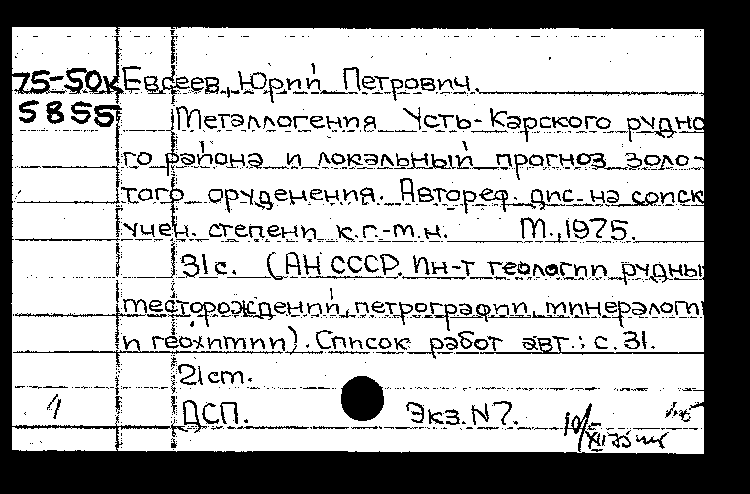 75-50к Евсеев, Юрий Петрович.
5855 Металлогения Усть-Карского рудно
го района и локальный прогноз золо-
того оруденения. Автореф. дис. на соиск
учен. степени к.г.-м.н. М., 1975.
31 с. (АН СССР. Ин-т геологии рудны
месторождений, петрографии, минералоги
и геохимии). Список работ авт.: с. 31.
21 см.
ДСП. Экз. N7.